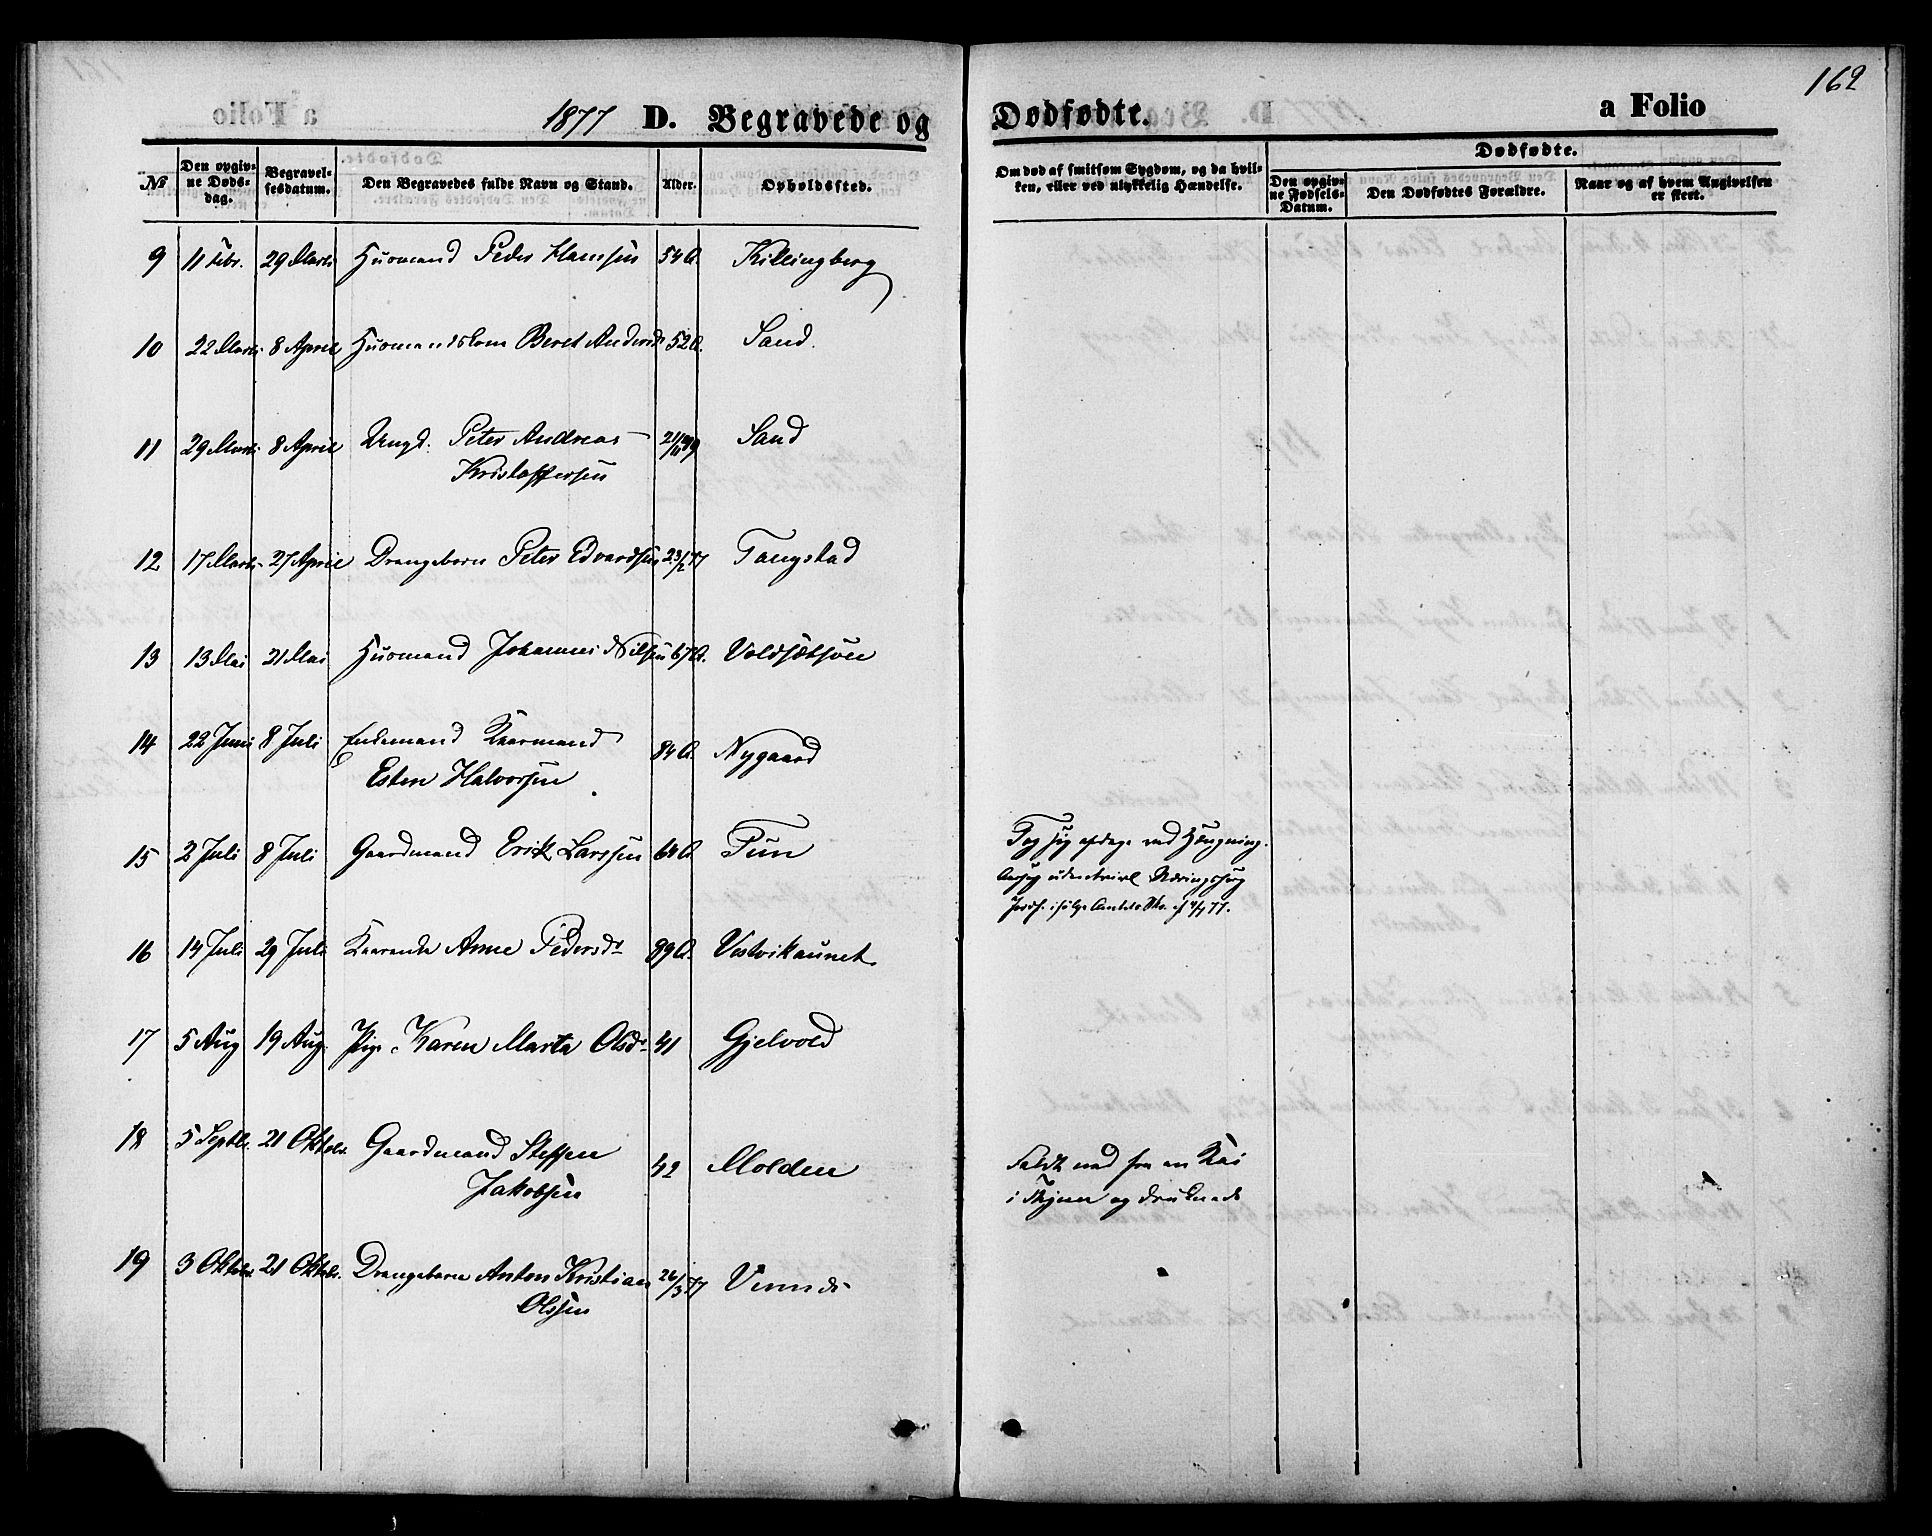 162
1877 D. Begravede og Dødfødte. a Folio
№ Den opgivne Dødsdag. Begravelsesdatum. Den Begravedes fulde Navn og Stand. Alder. Opholdssted. Om død af smitsom Sygdom, og da hvilken, eller ved ulykkelig Hændelse. Dødfødte. Den opgivne Fødsels-Datum. Den Dødfødtes Forældre. Naar og af hvem Angivelsen er skeet.
9 11 Febr. 29 Marts Husmand Peder Hansen 54 A. Killingberg
10 22 Marts 8 April Husmandskone Beret Andersdr 52 A. Sand.
11 29 Marts 8 April Ungd. Peter Andreas Sand
Kristoffersen
12 17 Marts 27 April Drengebarn Peter Edvardsen 23/2 77 Tangstad
13 13 Mai 21 Mai Husmand Johannes Nilsen 67 A. Voldsætsveen
14 22 Juni 8 Juli Enkemand Kaarmand 84 A. Nygaard
Esten Halvorsen
15 2 Juli 8 Juli Gaardmand Erik Larssen 64 A. Tun Tog sig afdage ved Hængning.
Aarsag udentvivl Næringssorg
Jordf. ifølge Amtets Skr. af 4/7 77.
16 14 Juli 29 Juli Kaarenke Anne Pedersdr 89 A. Vestvikaunet
17 5 Aug 19 Aug. Pige Karen Marta Olsdr 41 Gjelvold
18 5 Septbr. 21 Oktobr. Gaardmand Steffen 42 Molden Faldt ned fra en Kai
Jakobsen i Thjem og druknede
19 3 Oktobr. 21 Oktobr. Drengebarn Anton Kristian 26/3 77 Vinnes
Olssen